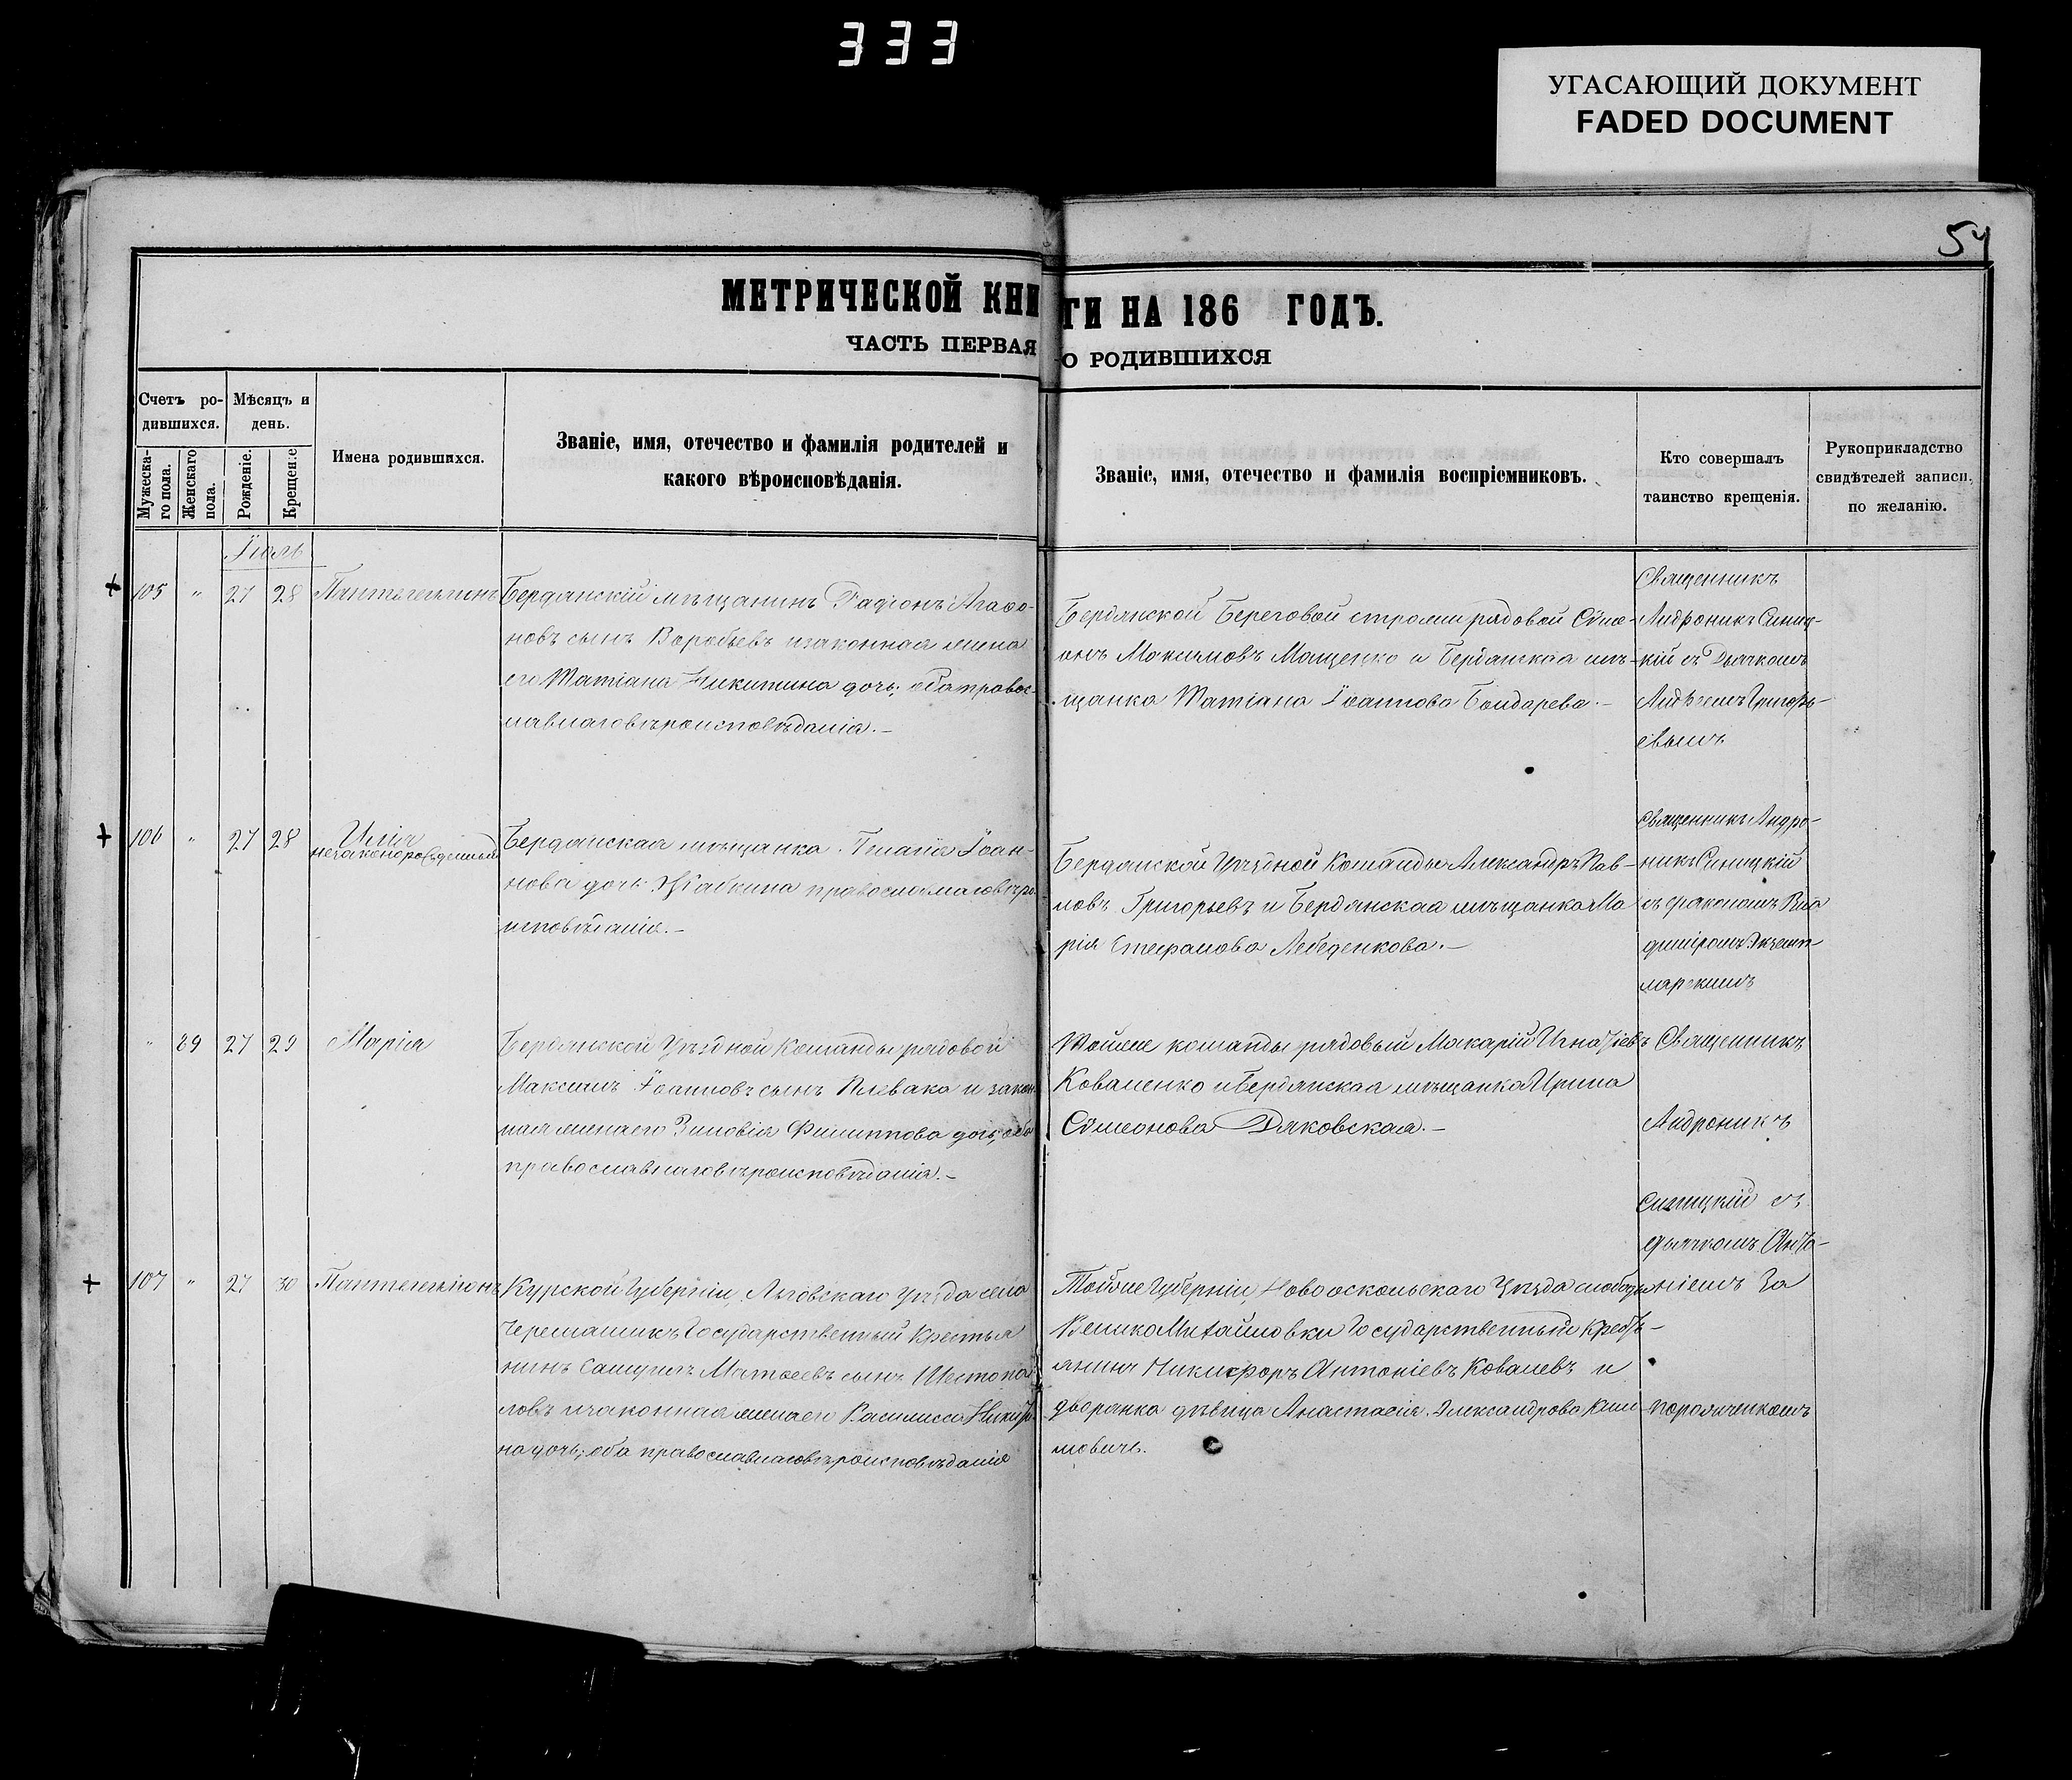 333
УГАСАЮЩИЙ ДОКУМЕНТ
FADED DOCUMENT
54
МЕТРИЧЕСКОЙ КНИГИ НА 186 ГОДЪ.
ЧАСТЬ ПЕРВАЯ О РОДИВШИХСЯ
Счетъ ро-
дившихся.
Мужеска-
го пола.
Женскаго
пола.
Мѣсяцъ и
день.
Рожденіе.
Крещеніе
Имена родившихся.
Званіе, имя, отечество и фамилія родителей и
какого вѣроисповѣданія.
Званіе, имя, отечество и фамилія воспріемниковъ.
Кто совершалъ
таинство крещенія.
Рукоприкладство
свидѣтелей записи.
по желанію.
Іюль
105 " 27 28 Пантелеимонъ
Бердянскій мѣщанинъ Радіонъ Агаѳо-
новъ сынъ Воробьевъ и законная жена
его Татіана Никитина дочь; оба правос-
лавнаго вѣроисповѣданія.-
Бердянской Береговой стражи рядовой Сѵме-
онъ Максимовъ Мащенко и Бердянская мѣ-
щанка Татіана Іоаннова Бондарева.-
Священникъ
Андроникъ Синиц-
кій съ Дьячкомъ
Андреемъ Григорь-
евымъ
106 " 27 28 Илія
незаконорожденный
Бердянская мѣщанка Іоан-
нова дочь Жабкина православнаго вѣро-
исповѣданія.-
Бердянской Уѣздной Команды Александръ Пав-
ловъ Григорьевъ и Бердянская мѣщанка Ма
рія Стефанова Лебеденкова.-
Священникъ Андро-
никъ Синицкій
съ діакономъ Вла
диміромъ
" 89 27 29 Марія
Бердянской Уѣздной Команды рядовой
Максимъ Іоанновъ сынъ Плевака и закон-
ная жена его Зиновія Филиппова дочь; оба
православнаго вѣроисповѣданія.-
Тойже команды рядовый Макарій Игнатіевъ
Коваленко и Бердянская мѣщанка Ирина
Сѵмеонова Дяковская.-
Священникъ
Андроникъ
Синицкій съ
дьячкомъ Анто-
ніемъ За
порожченкомъ
107 " 27 30 Пантелеимонъ
Курской Губерніи, Льговскаго Уѣзда села
Черемашекъ Государственный Крестья
нинъ Самуилъ Матѳеевъ сынъ Шестопа
ловъ и законная жена его Василисса
на дочь; оба православнаго вѣроисповѣданія
Тойже Губерніи, Новооскольскаго Уѣзда слободы
ВеликоМихайловки Государственный Кресть-
янинъ Никифоръ Антоніевъ Ковалевъ и
дворянка дѣвица Анастасія Александрова Кли
мовичъ.